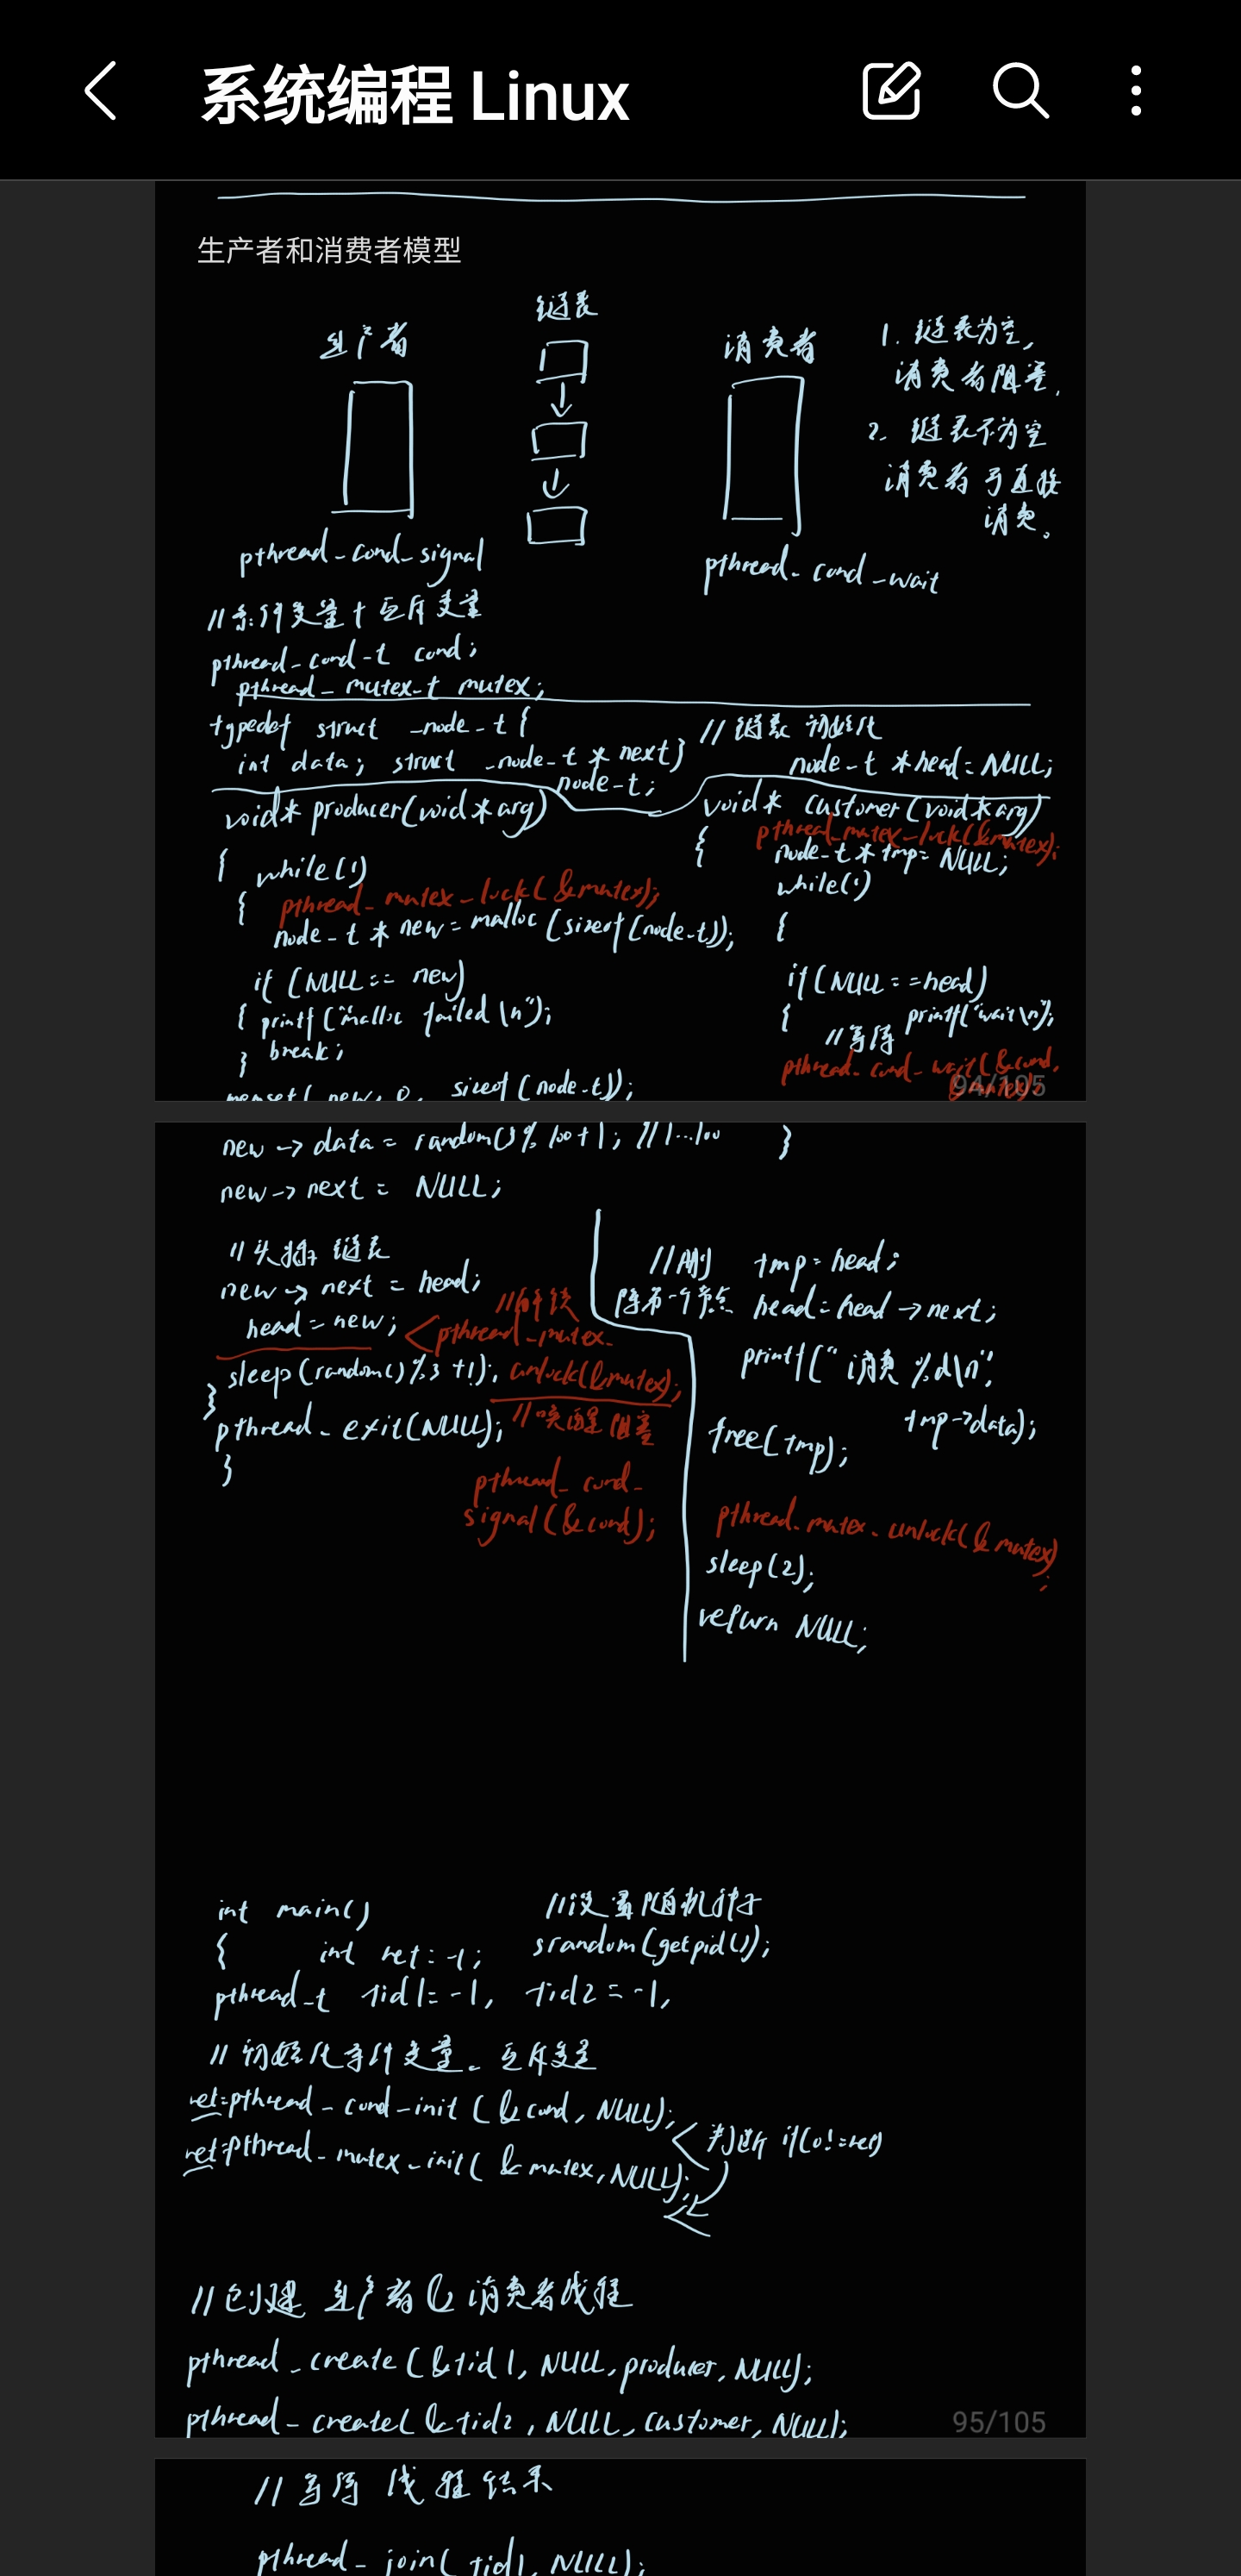 系统编程 Linux
生产者和消费者模型
链表
生产者
消费者
1. 链表为空,
消费者阻塞.
2. 链表不为空
消费者可直接
消费。
pthread_cond_signal
pthread_cond_wait
//条件变量+互斥变量
pthread_cond_t cond;
pthread_mutex_t mutex;
typedef struct _node_t {
int data; struct _node_t * next}
node_t;
//链表初始化
node_t *head=NULL;
void* producer(void*arg)
{ while(1)
{ pthread_mutex_lock(&mutex);
node_t * new = malloc (sizeof(node_t));
if (NULL == new)
{ printf("malloc failed \n");
break;
}
memset( new, 0, sizeof (node_t));
void* customer(void*arg)
pthread_mutex_lock(&mutex);
{ node_t * tmp= NULL;
while(1)
{
if(NULL==head)
{ printf("wait\n");
//等待
pthread_cond_wait(&cond,
&mutex);
94/105
new -> data = random()% 100+1; //1...100 }
new -> next = NULL;
//头插 链表
new -> next = head;
head = new;
//解锁
pthread_mutex_
unlock(&mutex);
sleep(random()%3 +1);
//唤醒阻塞
}
pthread_exit(NULL);
pthread_cond_
signal(&cond);
}
//删 tmp=head;
除第一个节点 head=head ->next;
printf(" 消费 %d\n",
tmp->data);
free(tmp);
pthread_mutex_unlock(&mutex)
;
sleep(2);
return NULL;
int main() //设置随机种子
{ int ret=-1; srandom(getpid());
pthread_t tid1=-1, tid2=-1,
//初始化条件变量、互斥变量
ret=pthread_cond_init (&cond, NULL);
判断 if(0!=ret)
ret=pthread_mutex_init( &mutex,NULL);
//创建 生产者和消费者线程
pthread_create (&tid1, NULL,producer, NULL);
pthread_create( &tid2, NULL, customer, NULL);
95/105
//等待 线程结束
pthread_join( tid1, NULL);